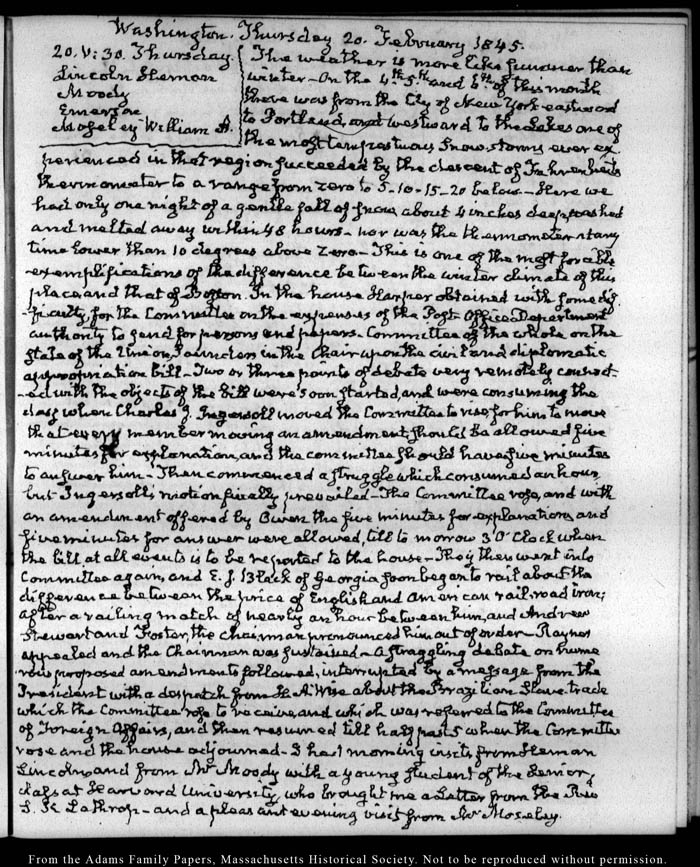 Washington. Thursday 20. February 1845.
20. V:30. Thursday.
Lincoln Heman
Moody
Emerson
Moseley William A.
The weather is more like summer than
winter - On the 4th 5th and 6th of this month
there was from the City of New York eastward
to Portland, and westward to the Lakes one of
the most tempestuous Snow-storms ever ex-
perienced in that region succeeded by the descent of Fahrenheit's
thermometer to a range from zero to 5-10-15-20 below - Here we
had only one night of a gentle fall of snow about 4 inches deep washed
and melted away within 48 hours - nor was the thermometer at any
time lower than 10 degrees above Zero - This is one of the most forcible
exemplifications of the difference between the winter climate of this
place and that of Boston. In the house Harper obtained with some dif-
ficulty, for the Committee on the expenses of the Post-Office Department
authority to send for persons and papers. Committee of the whole on the
state of the Union, Saunders in the Chair upon the civil and diplomatic
appropriation bill - Two or three points of debate very remotely connect-
ed with the objects of the bill were soon started, and were consuming the
day when Charles J. Ingersoll moved the Committee to rise, for him to move
that every member moving an amendment should be allowed five
minutes for explanation, and the committee should have five minutes
to answer him - Then commenced a struggle which consumed an hour
but Ingersoll's motion finally prevailed - The Committee rose, and with
an amendment offered by the five minutes for explanation, and
five minutes for answer were allowed, till to morrow 3 O'Clock when
the bill, at all events is to be reported to the house - They then went into
Committee again, and E. J. Black of Georgia soon began to rail about the
difference between the price of English and American rail-road iron;
after a railing match of nearly an hour between him, and Andrew
Stewart and Foster, the Chairman pronounced him out of order - Rayner
appealed and the Chairman was sustained - A straggling debate on nume-
rous proposed amendments followed, interrupted by a message from the
President with a despatch from H. A. Wise about the Brazilian Slave-trade
which the Committee rose to receive, and which was referred to the Committee
of Foreign Affairs, and then resumed till half past 5 when the Committee
rose and the house adjourned - I had morning visits from Heman
Lincoln and from Mr Moody with a young student of the Senior
class at Harvard University, who brought me a Letter from the Revd
S. K. Lothrop - and a pleasant evening visit from Mr Moseley.
From the Adams Family Papers, Massachusetts Historical Society. Not to be reproduced without permission.